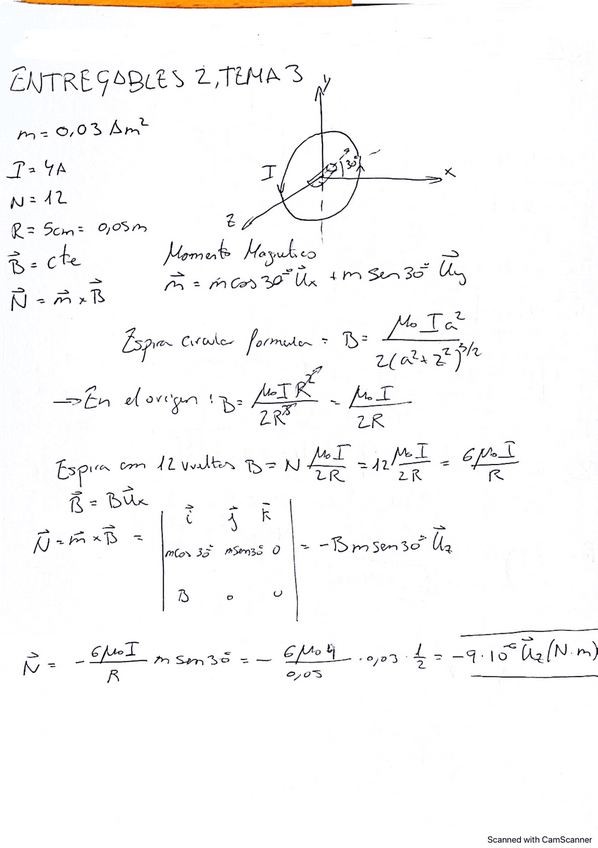 ENTREGABLES 2, TEMA 3
m = 0,03 Am²
I = 4A
N = 12
R = 5cm = 0,05m
B⃗ = cte
N⃗ = m⃗ × B⃗
y
I
30°
x
z
Momento Magnetico
m⃗ = m cos 30° U⃗x + m sen 30° U⃗y
Espira circular formula = B = μ₀ I a² / 2(a² + z²)^3/2
→ En el origen : B = μ₀ I R² / 2R³ = μ₀ I / 2R
Espira con 12 vueltas B = N μ₀ I / 2R = 12 μ₀ I / 2R = 6 μ₀ I / R
B⃗ = B U⃗x
N⃗ = m⃗ × B⃗ = | i⃗ j⃗ k⃗ | m cos 30° m sen 30° 0 | B 0 0 | = - B m sen 30° U⃗z
N⃗ = - 6 μ₀ I / R m sen 30° = - 6 μ₀ 4 / 0,05 · 0,03 · 1/2 = -9·10⁻⁶ U⃗z (N·m)
Scanned with CamScanner